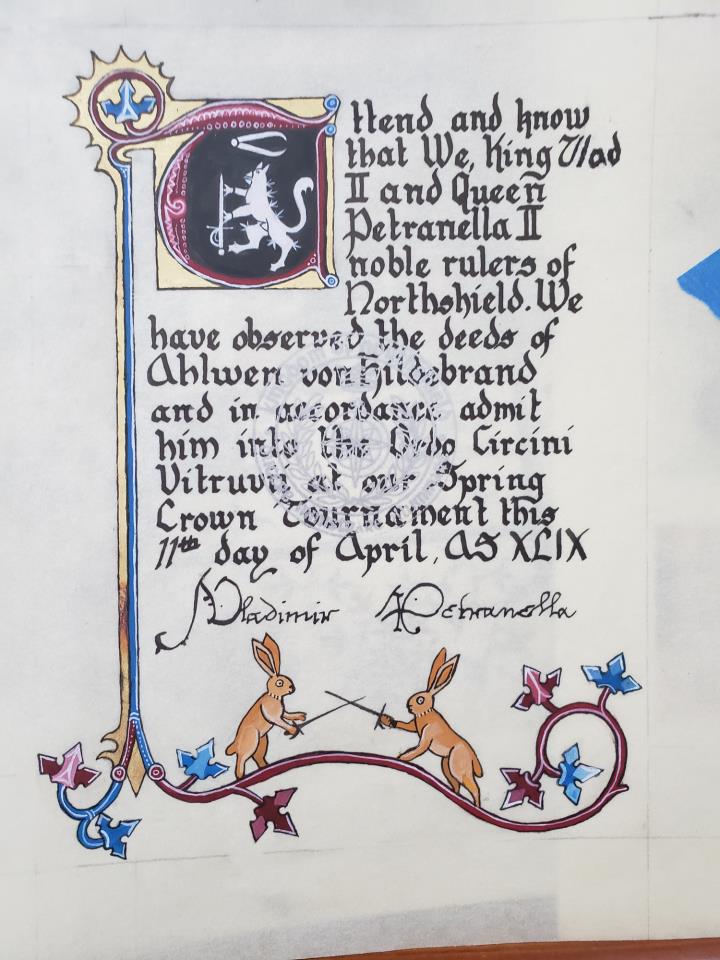 Attend and know
that We, King Vlad
II and Queen
Petranella II
noble rulers of
Northshield. We
have observed the deeds of
Ahlwen von Hildebrand
and in accordance admit
him into the Ordo Circini
Vitruvii at our Spring
Crown Tournament this
11th day of April, AS XLIX
Vladimir Petranella